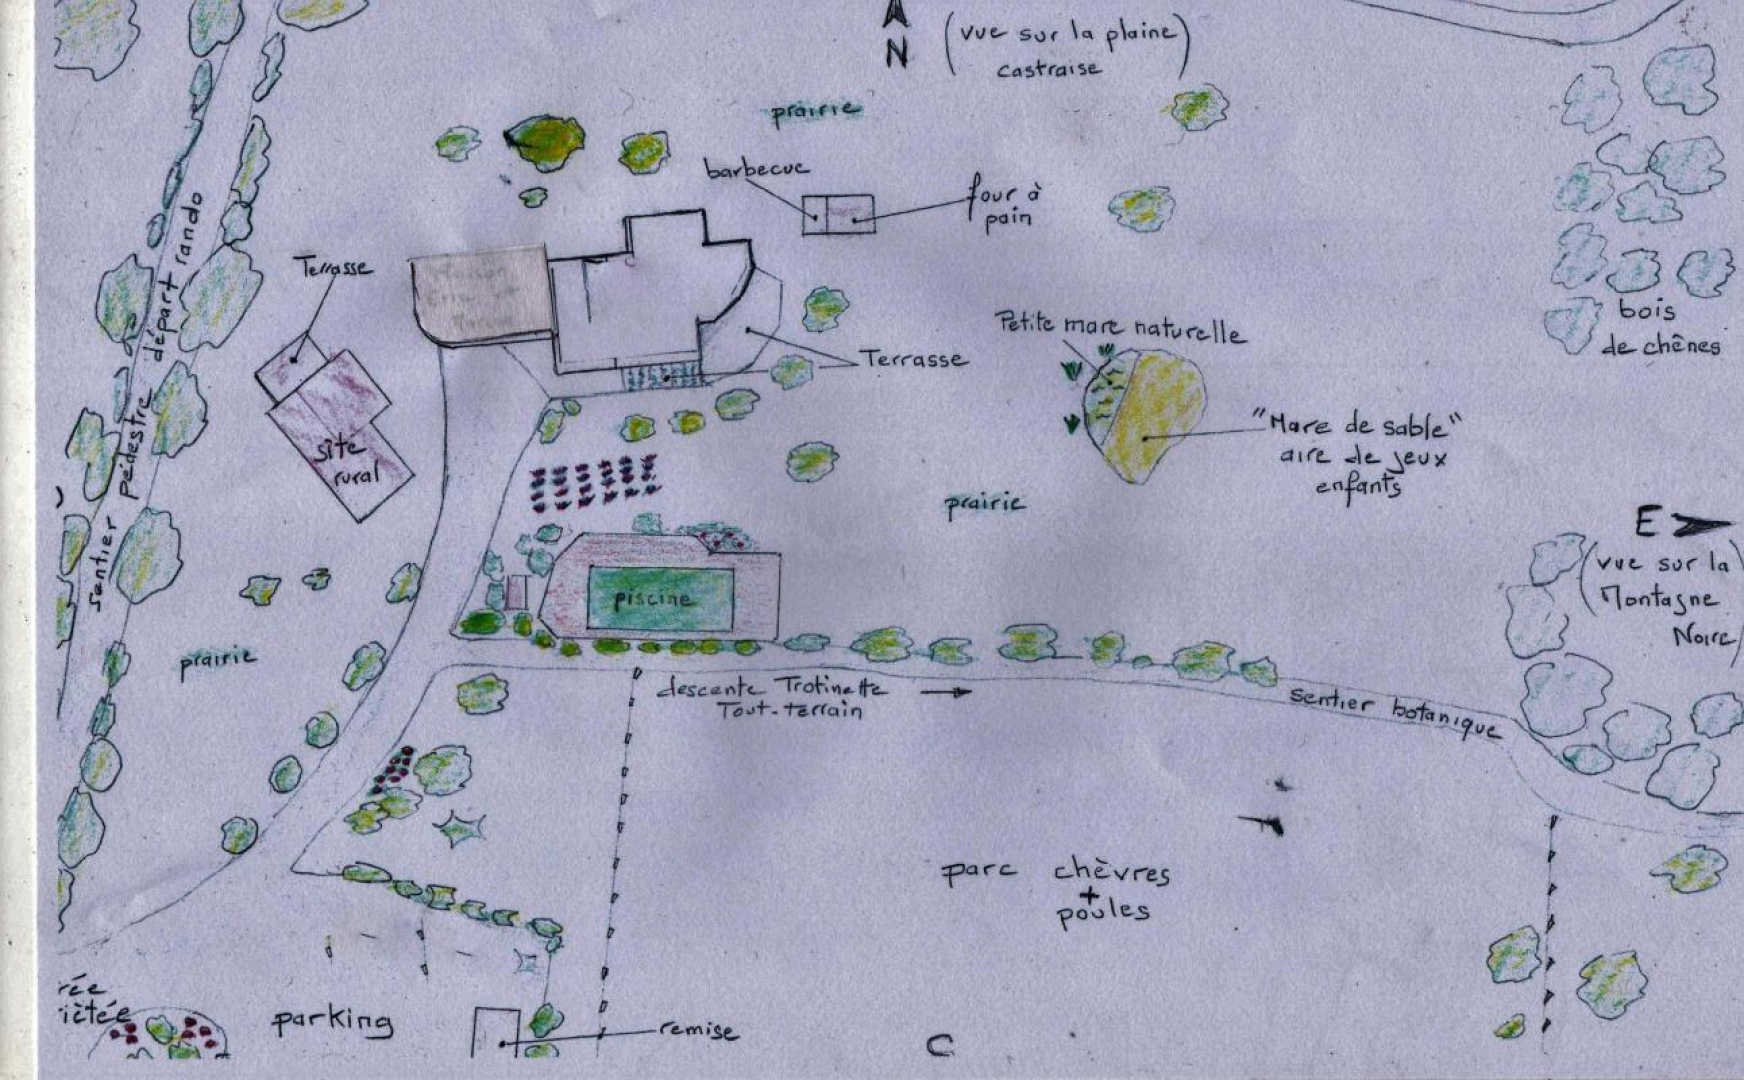 N
(vue sur la plaine
castraise)
prairie
barbecue
four à
pain
Terrasse
départ rando
sentier pédestre
Terrasse
Petite mare naturelle
bois
de chênes
site
rural
"Mare de sable"
aire de jeux
enfants
prairie
E
(vue sur la
Montagne
Noire)
piscine
prairie
descente Trotinette
Tout-terrain
sentier botanique
parc chèvres
+
poules
rée
iétée
parking
remise
C